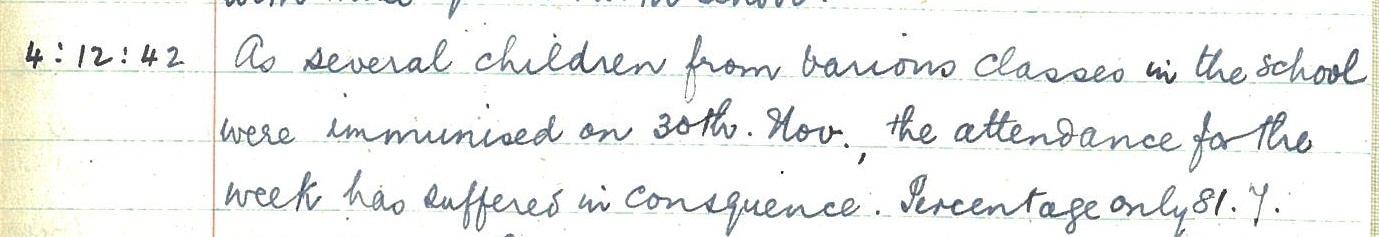 4:12:42 As several children from various classes in the school
were immunised on 30th. Nov., the attendance for the
week has suffered in consquence. Percentage only 81.7.